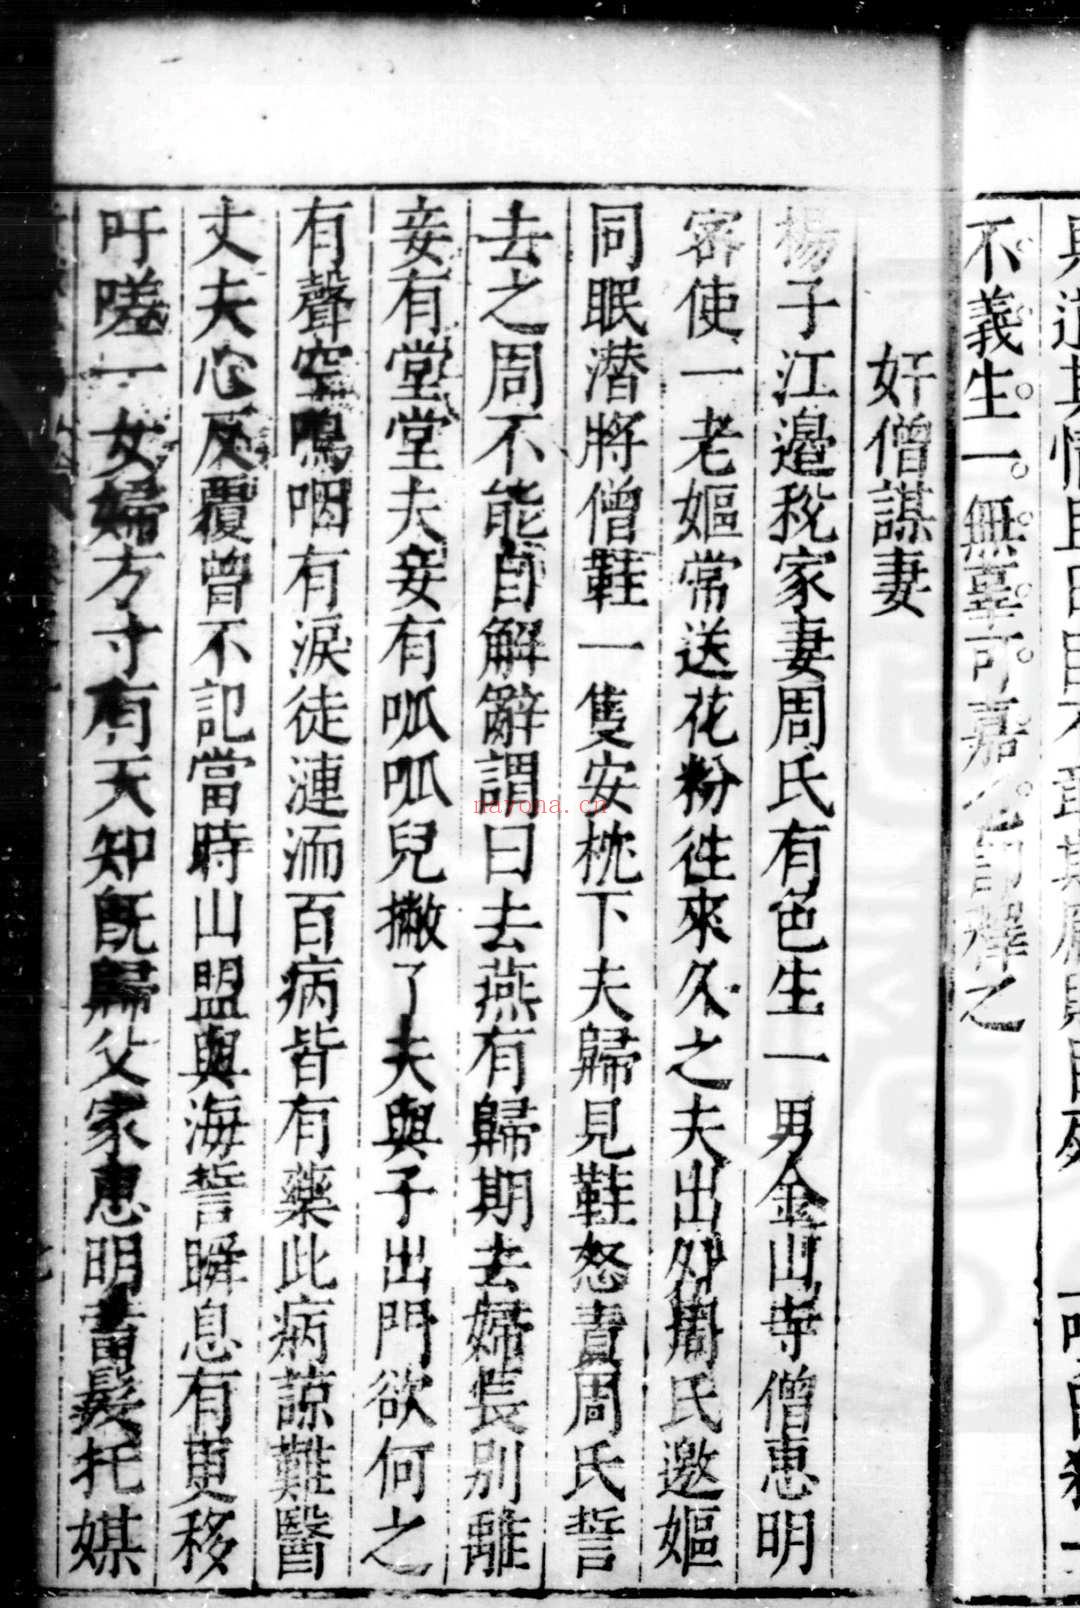 不義生一無辜可嘉
釋之
奸僧謀妻
楊子江邉稅家妻周氏有色生一男金山寺僧惠明
密使一老嫗常送花粉徃來久之夫出外周氏邀嫗
同眠潜將僧鞋一隻安枕下夫歸見鞋怒責周氏誓
去之周不能自解辭謂曰去燕有歸期去婦長别離
妾有堂堂夫妾有呱呱兒撇了夫與子出門欲何之
有聲空嗚咽有淚徒漣洏百病皆有藥此病諒難醫
丈夫心反覆曾不記當時山盟與海誓瞬息有更移
吁嗟一女婦方寸有天知既歸父家惠明畜髮托媒
nayona.cn